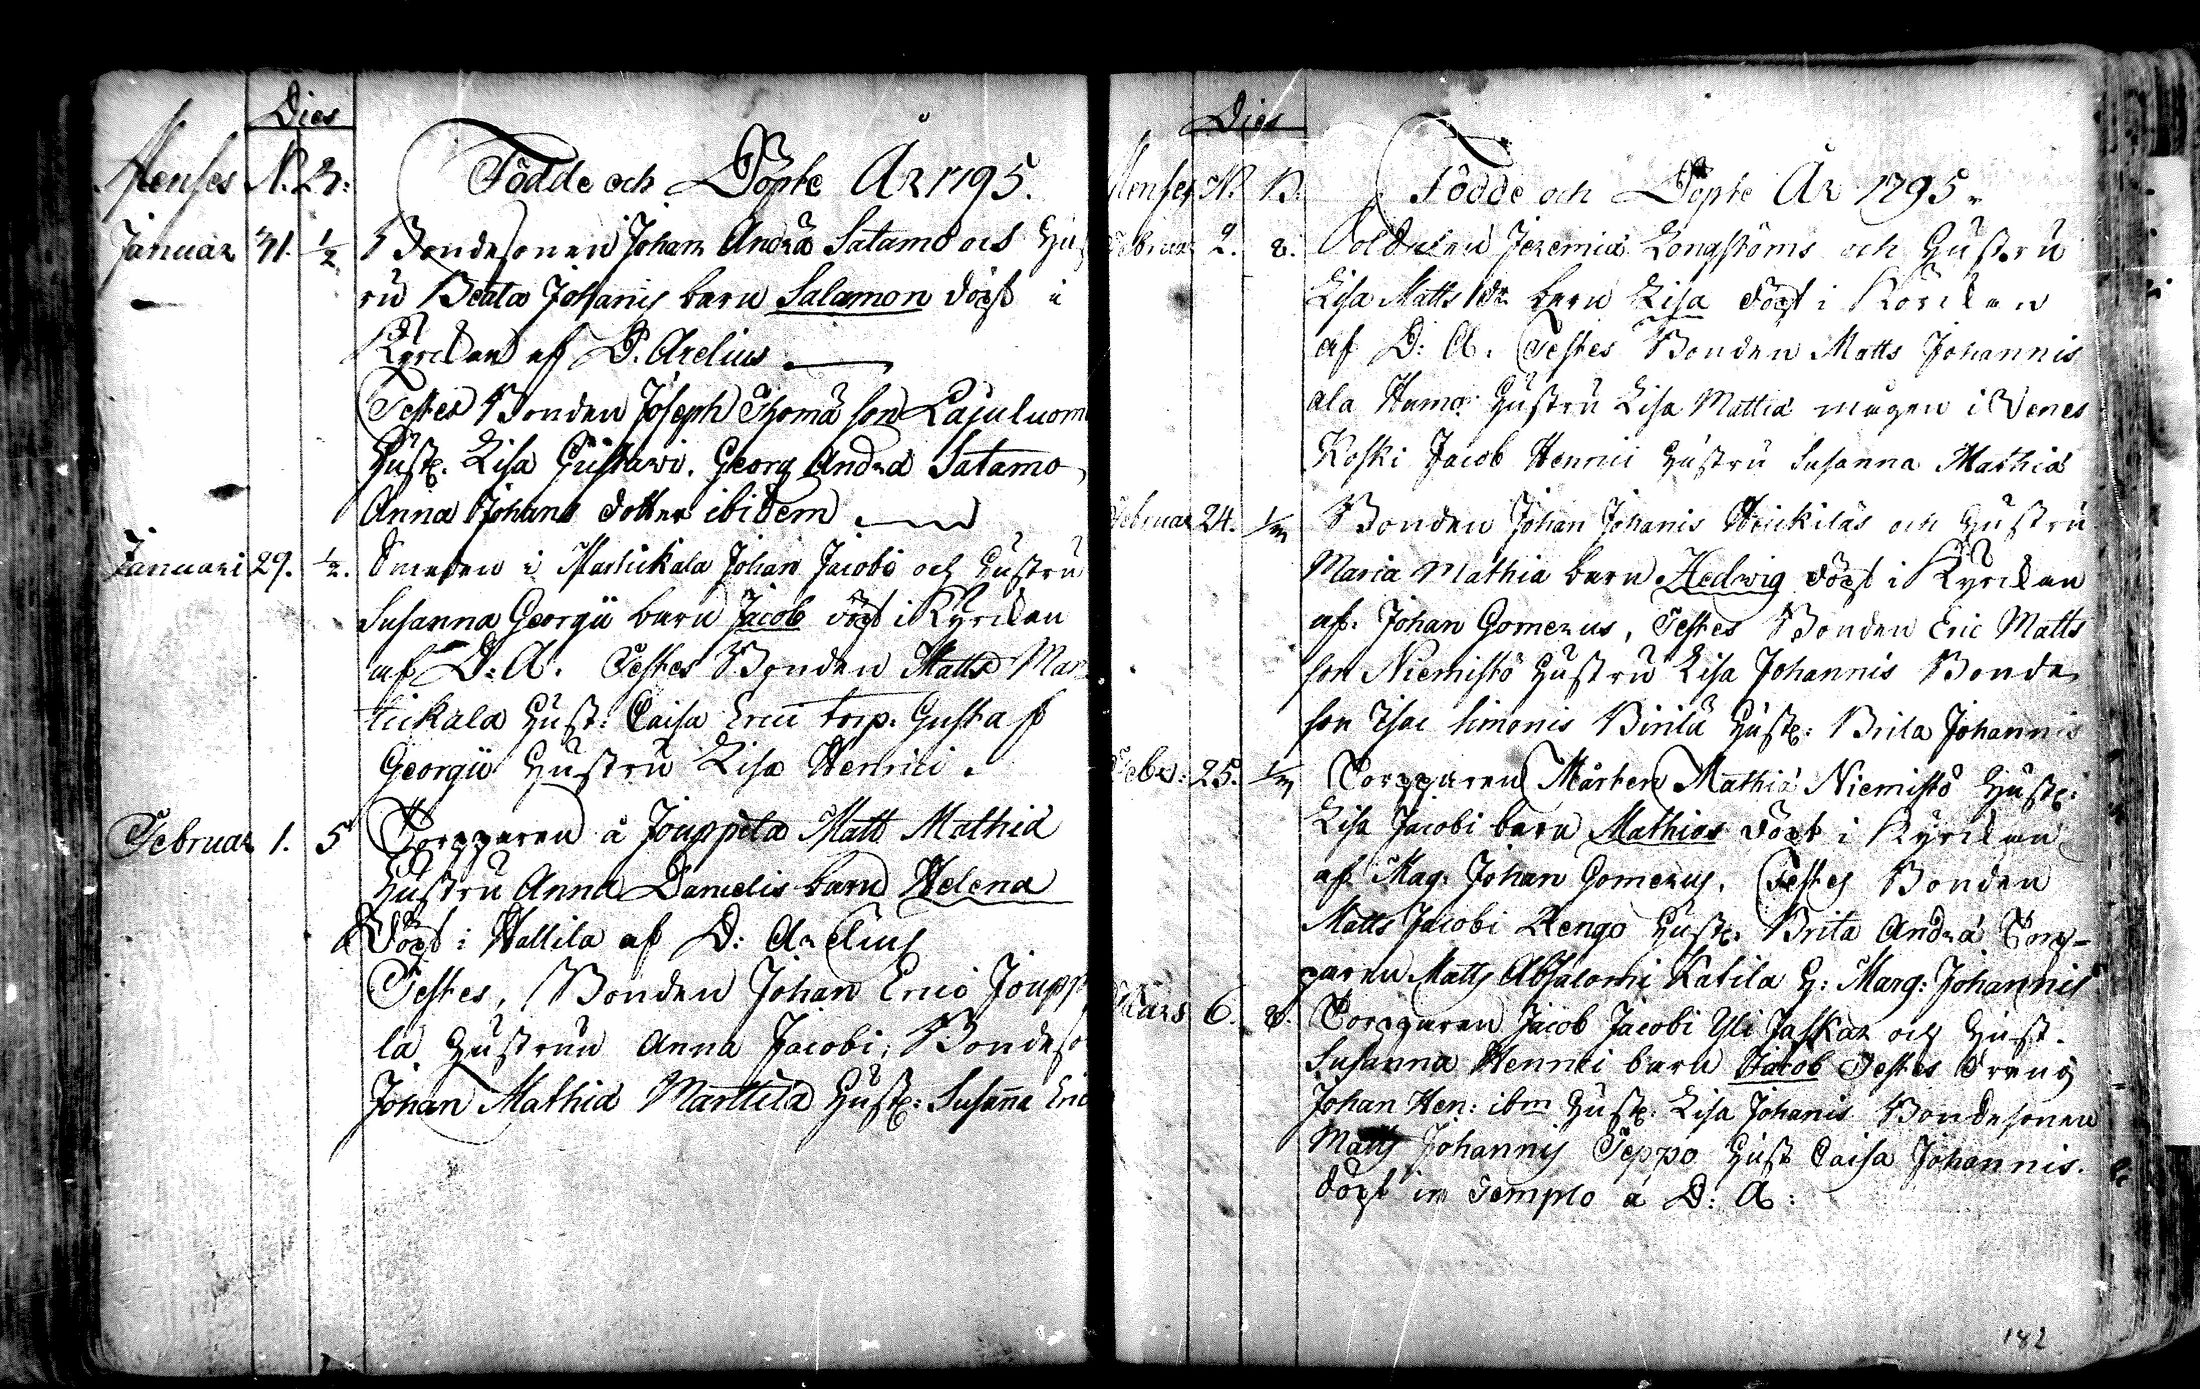 Dies
Menses N. B:
Födde och Döpte År 1795.
Januar 31. 1/2 Bondesonen Johan Andræ Satamo och Hust
ru Beata Johanis barn Salamon döpt i
Kyrckan af D. Arelius
Testes Bonden Joseph Thomæ son Lajuluom
Hust. Lisa Gustavi. Georg Andræ Satamo
Anna Johans dotter ibidem
Januari 29. 1/2. Smeden i Martickala Johan Jacobi och Hustru
Susanna Georgii barn Jacob döpt i Kyrckan
af D: A. Testes Bonden Matts Mar
tickala Hust: Caisa Erici torp. Gustaf
Georgii Hustru Lisa Henrici.
Februar 1. 5 Torpparen å Jouppila Matt Mathiæ
Hustru Anna Danielis barn Helena
Döpt i Hallila af D: Arelius
Testes, Bonden Johan Erici Joupp
la Hustrun Anna Jacobi, Bondeso
Johan Mathiæ Marttila Hust: Susanna Eric
Dies
Menses N. B.
Födde och Döpte År 1795.
Februar 2. 8. Soldaten Jeremiæ Longströms och Hustru
Lisa Matts dr barn Lisa döpt i Körckan
af D: A. Testes Bonden Matts Johannis
ala Humo Hustru Lisa Mattiæ mågen i Venes
Koski Jacob Henrici Hustru Susanna Mathiæ
Februar 24. Bonden Johan Johanis Heickiläs och Hustru
Maria Mathiæ barn Hedwig döpt i Kyrckan
af. Johan Gomerus, Testes Bonden Eric Matts
son Niemistö Hustru Lisa Johannis Bonde
son Isac Simonis Pirilä Hust: Brita Johannis
Febr: 25. Torpparen Mårten Mathiæ Niemistö Hust:
Lisa Jacobi barn Mathias döpt i Kyrckan
af Mag: Johan Gomerus. Testes Bonden
Matts Jacobi Rengo Hust. Brita Andræ Torp-
paren Matts Absalomi Katila H: Marg: Johannis
Mars 6. 8. Torpparen Jacob Jacobi Yli Jaskar och Hust.
Susanna Henrici barn Jacob Testes Dreng
Johan Hen: ibm Hust. Lisa Johanis Bondesonen
Matts Johannis Seppo Hust Caisa Johannis.
döpt in Templo a D: A:
182